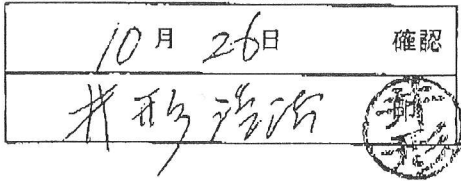 10月26日 確認
井形浩治
印
井形